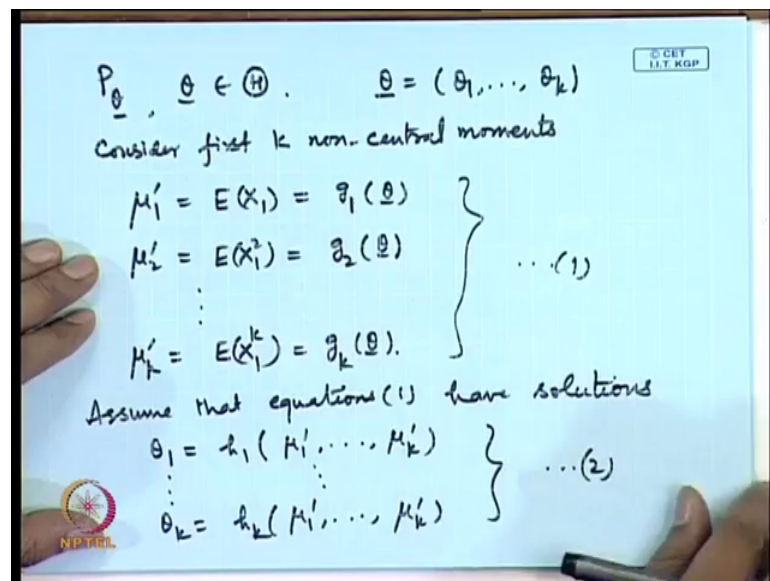 P_θ , θ ∈ Ⓗ. θ = (θ1, ..., θk)
© CET
I.I.T. KGP
Consider first k non-central moments
μ1′ = E(X1) = g1(θ)
μ2′ = E(X1²) = g2(θ)
⋮
μk′ = E(X1^k) = gk(θ).
...(1)
Assume that equations (1) have solutions
θ1 = h1(μ1′, ..., μk′)
⋮ ⋮
θk = hk(μ1′, ..., μk′)
...(2)
NPTEL